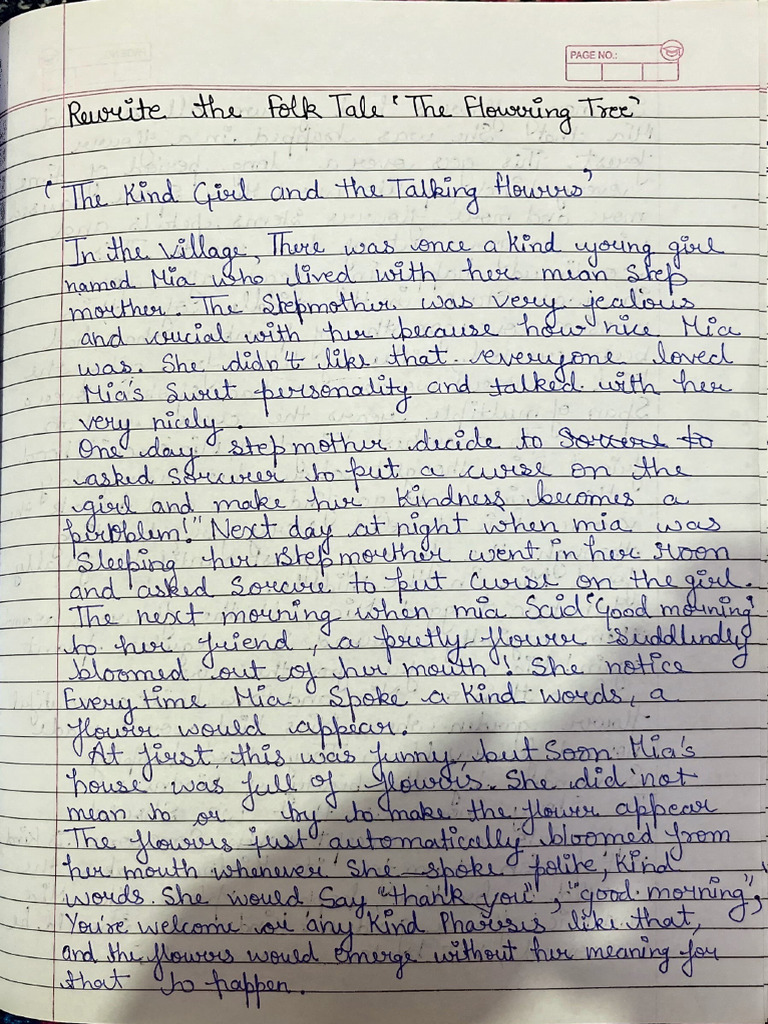 PAGE NO.:
Rewrite the Folk Tale 'The Flowring Tree'
'The Kind Girl and the Talking flowrrs'
In the Village, There was once a kind young girl
named Mia who lived with her mean Step
morther. The Stepmother was very jealous
and crucial with her because how nice Mia
was. She didn't like that everyone loved
Mia's Sweet personality and talked with her
very nicely.
One day stepmother decide to Sorcere to
asked Sorcirer to put a curse on the
girl and make her Kindness becomes a
perpblem!" Next day at night when mia was
Sleeping her stepmorther went in her room
and asked Sorcire to put Curse on the girl.
The next morning when mia Said "Good morning"
to her friend, a pretty flowrr suddlindly
bloomed out of her mouth! She notice
Every time Mia Spoke a Kind words, a
flowrr would appear.
At first, this was funny, but Soon Mia's
house was full of flowrrs. She did not
mean to or try to make the flowrr appear
The flowrrs just automatically bloomed from
her mouth whenever She spoke polite, Kind
words. She would Say "thank you", "good morning",
You're welcome or any Kind Pharsis like that,
and the flowrrs would emerge without her meaning for
that to happen.